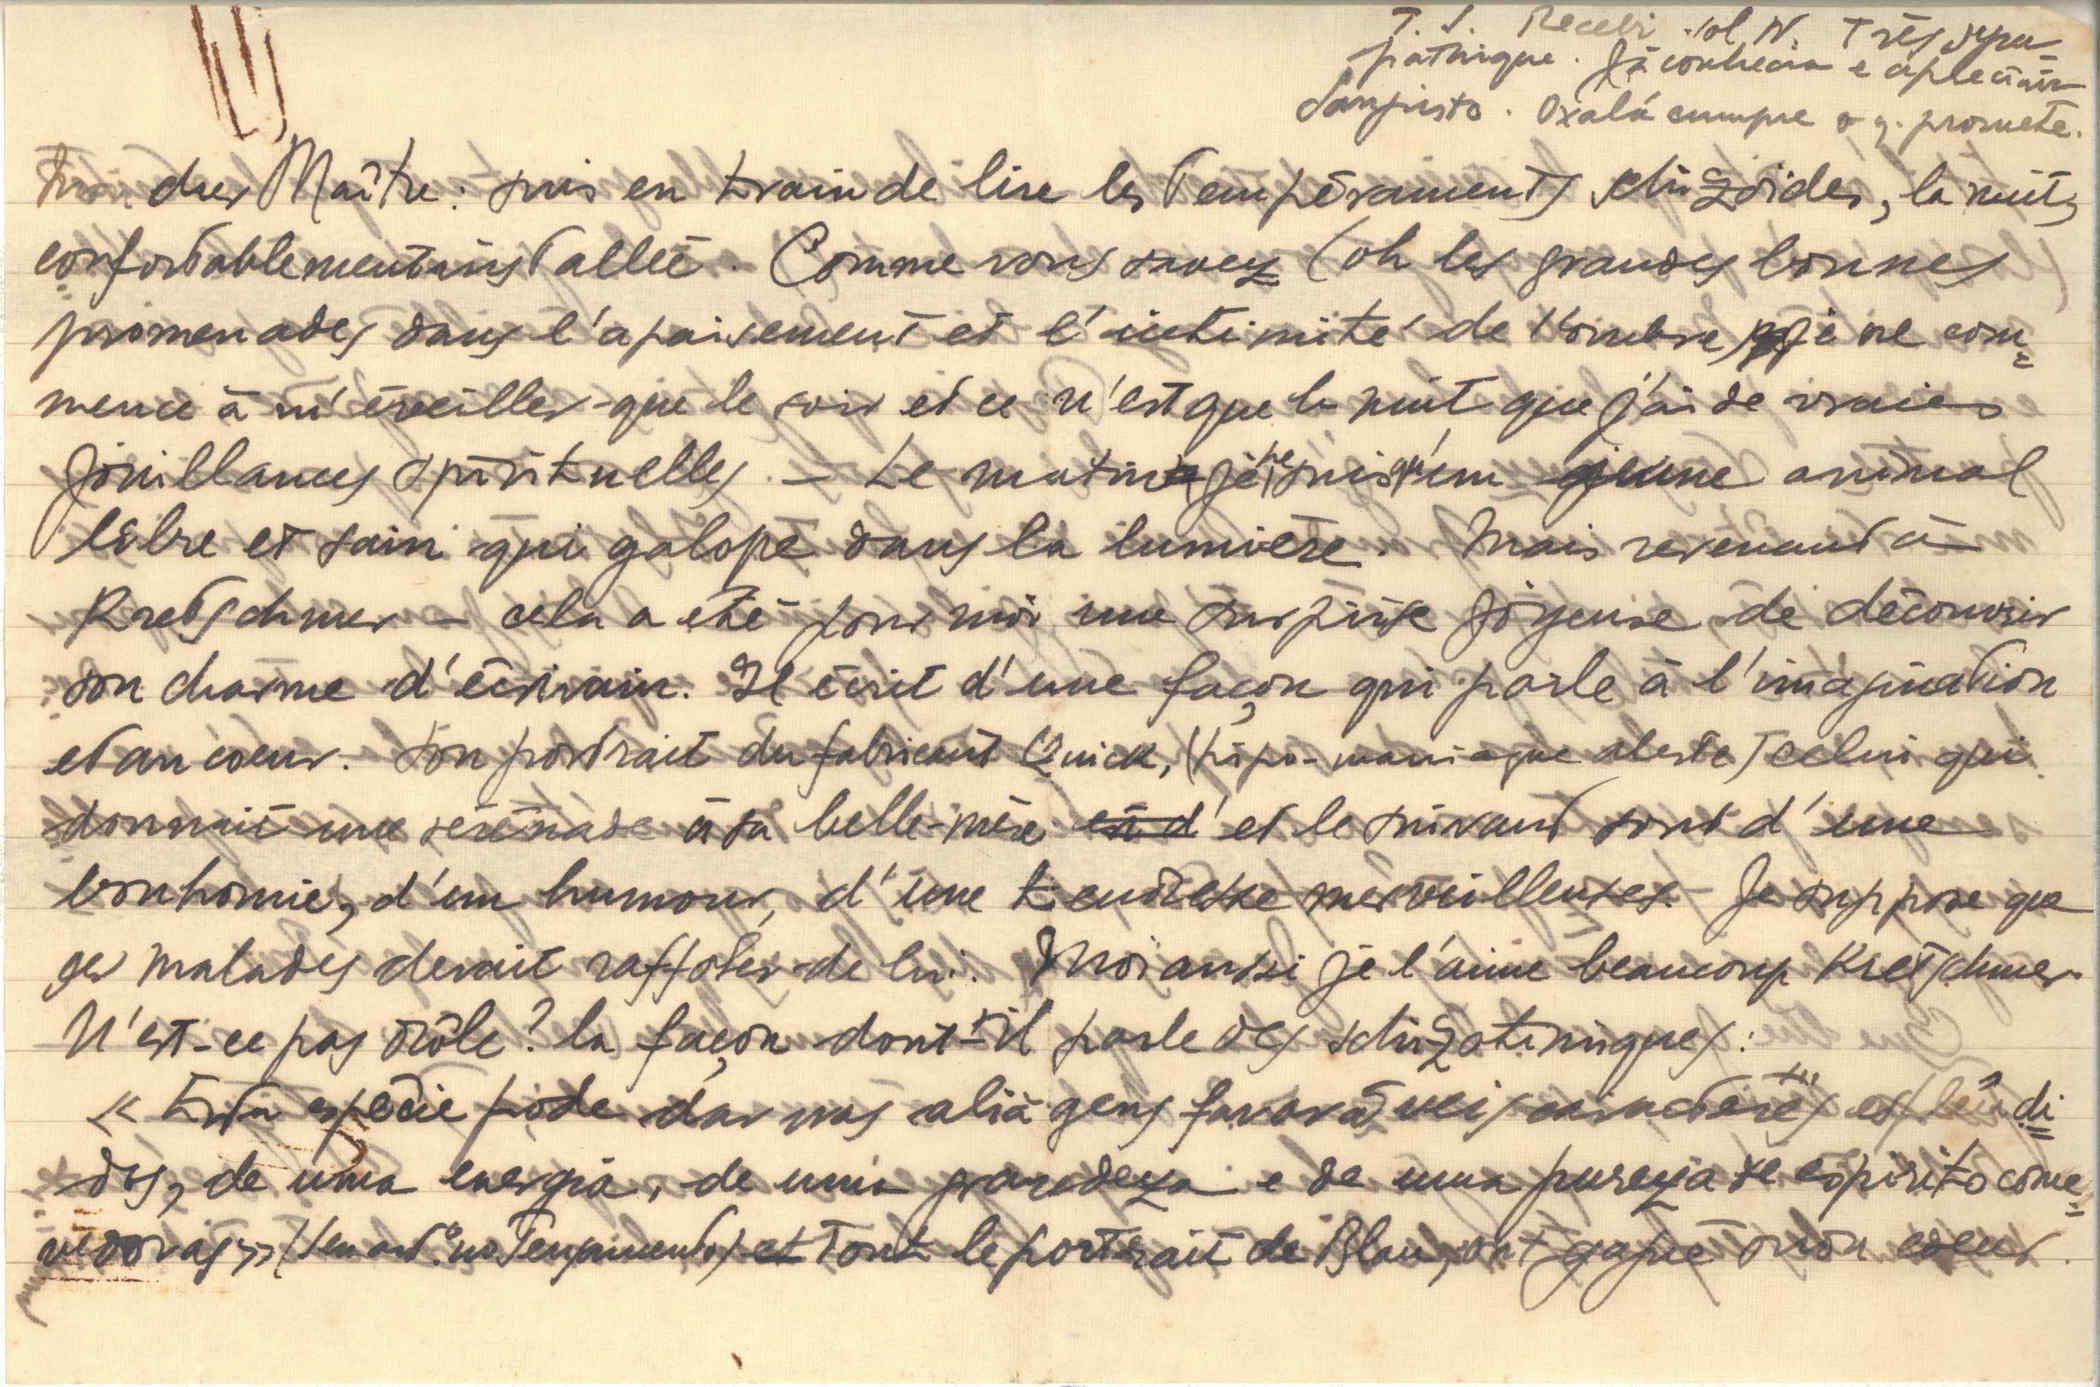 T. S. Recebi vol N. Très sym-
pathique. Já conhecia e apreciava
Sanjusto. Oxalá cumpre o q. promete.
cher Maître: suis en train de lire les Tempéraments schizoïdes, la nuit,
confortablement installée. Comme vous savez (oh les grandes bonnes
promenades dans l'apaisement et l'intimité de l'ombre) je ne com=
mence à m'éveiller que le soir et ce n'est que la nuit que j'ai de vraies
jouillances spirituelles. — Le matin je ne suis qu'un jeune animal
libre et sain qui galope dans la lumière. Mais revenant à
Kretschmer — cela a été pour moi une surprise joyeuse de découvrir
son charme d'écrivain. Il écrit d'une façon qui parle à l'imagination
et au coeur. Son portrait du fabricant Quick, (hipo-maniaque alerte) celui qui
donnait une sérénade à sa belle-mère et le suivant sont d'une
bonhomie, d'un humour, d'une tendresse merveilleuses. Je suppose que
ses malades devait raffoler de lui. Moi aussi je l'aime beaucoup Kretschmer.
N'est-ce pas drôle? la façon dont-il parle des schizotimiques:
« Esta espécie pode dar nas aliagens favoráveis caracteres esplêndi=
dos, de uma energia, de uma grandeza e de uma pureza de espirito come=
vedoras » et tout le portrait de Blau, ont gagné mon coeur.